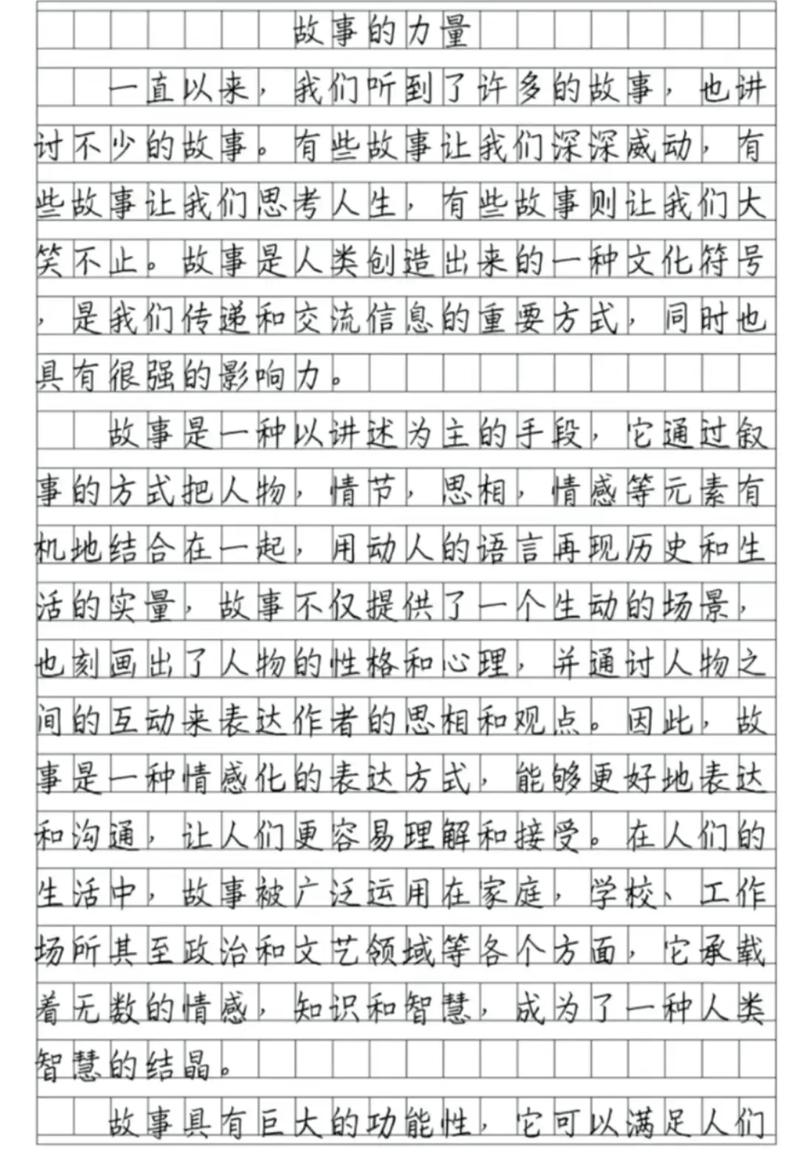 故事的力量
一直以来，我们听到了许多的故事，也讲
讨不少的故事。有些故事让我们深深威动，有
些故事让我们思考人生，有些故事则让我们大
笑不止。故事是人类创造出来的一种文化符号
，是我们传递和交流信息的重要方式，同时也
具有很强的影响力。
故事是一种以讲述为主的手段，它通过叙
事的方式把人物，情节，思相，情感等元素有
机地结合在一起，用动人的语言再现历史和生
活的实量，故事不仅提供了一个生动的场景，
也刻画出了人物的性格和心理，并通讨人物之
间的互动来表达作者的思相和观点。因此，故
事是一种情感化的表达方式，能够更好地表达
和沟通，让人们更容易理解和接受。在人们的
生活中，故事被广泛运用在家庭，学校、工作
场所其至政治和文艺领域等各个方面，它承载
着无数的情感，知识和智慧，成为了一种人类
智慧的结晶。
故事具有巨大的功能性，它可以满足人们